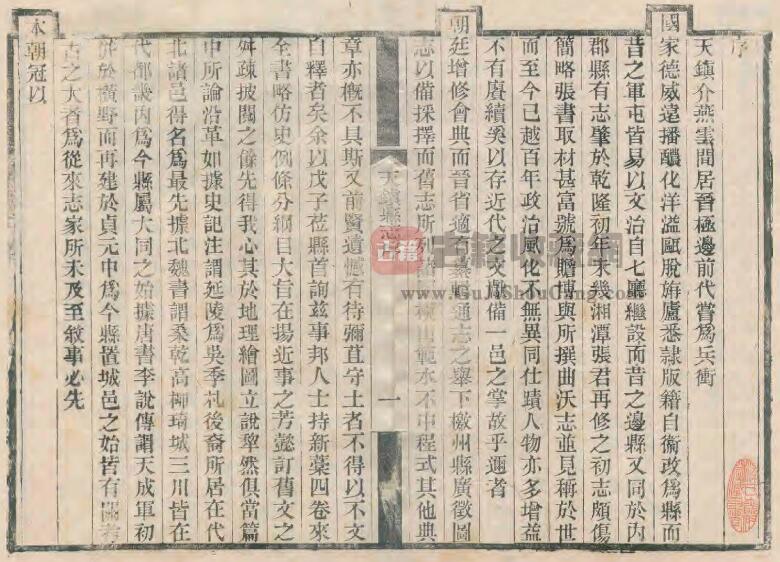 序
天鎮介燕雲間居晉極邊前代嘗爲兵衝
國家德威遠播醲化洋溢甌脫旃廬悉隷版籍自衞改爲縣而
昔之軍屯皆易以文治自七廳繼設而昔之邊縣又同於內
郡縣有志肇於乾隆初年未幾湘潭張君再修之初志頗傷
簡略張書取材甚富號爲贍博與所撰曲沃志並見稱於世
而至今已越百年政治風化不無異同仕蹟人物亦多增益
不有賡續奚以存近代之文獻備一邑之掌故乎邇者
朝廷增修會典而晉省適有纂輯通志之舉下檄州縣廣徵圖
志以備採擇而舊志所列 山範水不中程式其他典
天鎮縣志
一
章亦槪不具斯又前賢遺憾有待彌苴守土者不得以不文
自釋者矣余以戊子莅縣首詢兹事邦人士持新藁四卷來
全書略仿史例條分綱目大旨在揚近事之芳懿訂舊文之
舛疎披閱之餘先得我心其於地理繪圖立說犂然俱當篇
中所論沿革如據史記注謂延陵爲吳季札後裔所居在代
北諸邑得名爲最先據北魏書謂桑乾高柳琦城三川皆在
代都畿內爲今縣屬大同之始據唐書李說傳謂天成軍初
併於橫野而再建於貞元中爲今縣置城邑之始皆有關考
古之大者爲從來志家所未及至敘事必先
本朝冠以
古籍
古籍收藏網
www.GuJiShouCang.com